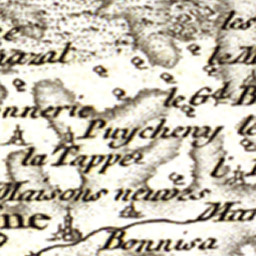 les
hazat
le M
nnerie
le Gd B
Puycheny
le
la Tappe
Maisons neuves
ine
Mar
Bonnisa